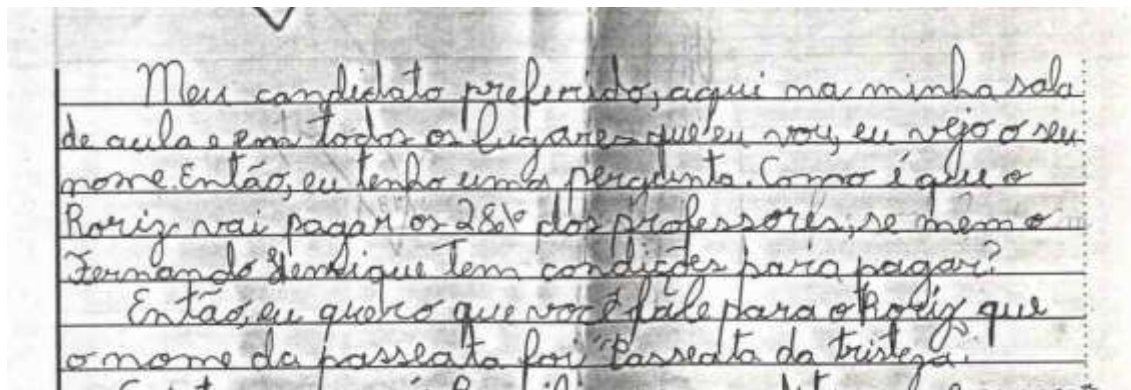 Meu candidato preferido, aqui na minha sala
de aula e em todos os lugares que eu vou, eu vejo o seu
nome. Então, eu tenho uma pergunta. Como é que o
Roriz vai pagar os 28% dos professores, se nem o
Fernando Henrique tem condições para pagar?
Então, eu quero que você fale para o Roriz que
o nome da passeata foi "Passeata da tristeza".